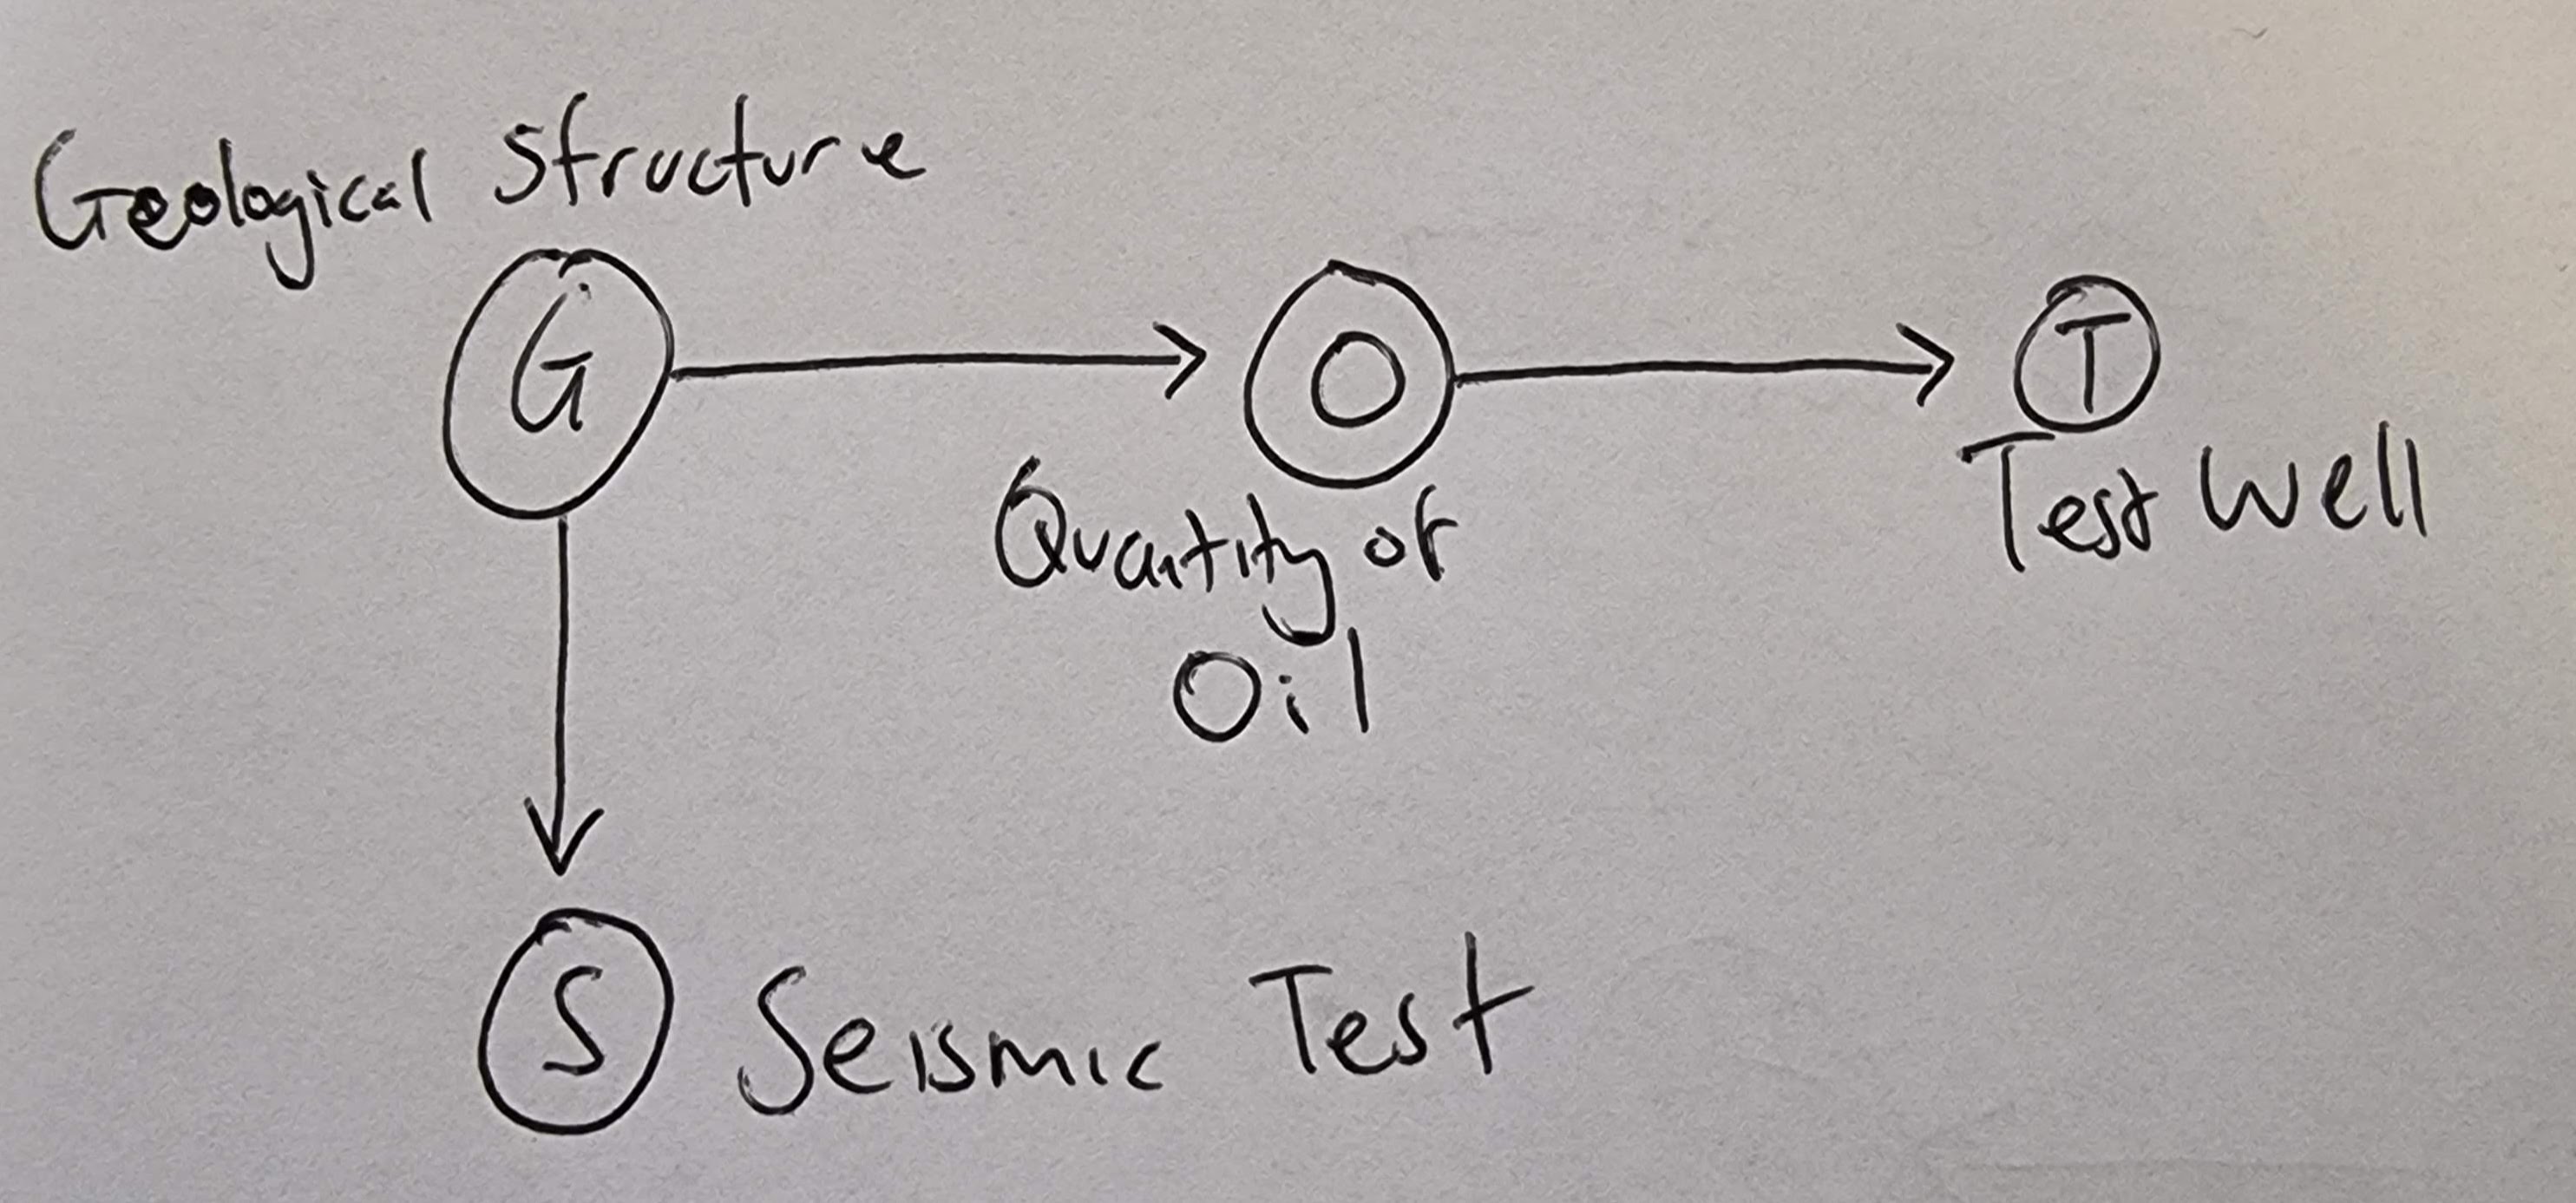 Geological Structure
G
O
T
Quantity of
Oil
Test Well
S
Seismic Test